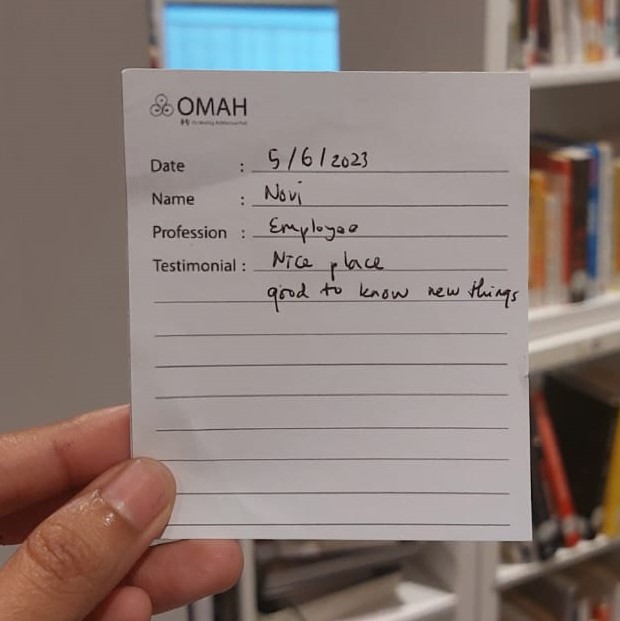 OMAH
Date : 5/6/2023
Name : Novi
Profession : Employee
Testimonial : Nice place
good to know new things